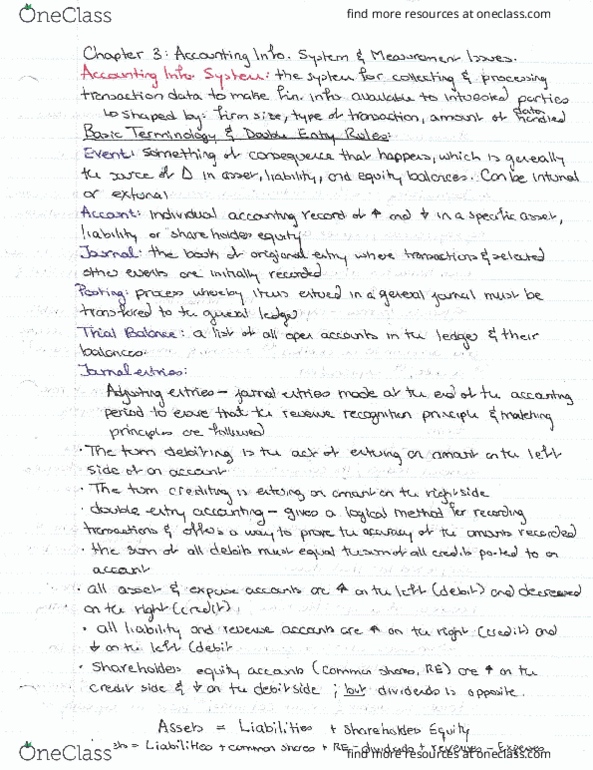 OneClass find more resources at oneclass.com
Chapter 3: Accounting Info. System & Measurement Issues.
Accounting Info System: the system for collecting & processing
transaction data to make fin. info available to interested parties
↳ shaped by: firm size, type of transaction, amount of data handled
Basic Terminology & Double Entry Rules:
Event: something of consequence that happens, which is generally
the source of Δ in asset, liability, and equity balances. Can be internal
or external
Account: Individual accounting record of ↑ and ↓ in a specific asset,
liability or shareholders equity
Journal: the book of original entry where transactions & selected
other events are initially recorded
Posting: process whereby items entered in a general journal must be
transfered to the general ledger
Trial Balance: a list of all open accounts in the ledger & their
balances.
Journal entries:
Adjusting entries – journal entries made at the end of the accounting
period to ensure that the revenue recognition principle & matching
principles are followed
· The term debiting is the act of entering an amount on the left
side of an account
· The term crediting is entering an amount on the right side
· double entry accounting – gives a logical method for recording
transactions & offers a way to prove the accuracy of the amounts recorded
· the sum of all debits must equal the sum of all credits posted to an
account
· all asset & expense accounts are ↑ on the left (debit) and decreased
on the right (credit)
· all liability and revenue accounts are ↑ on the right (credit) and
↓ on the left (debit
· Shareholders equity accounts (common shares, RE) are ↑ on the
credit side & ↓ on the debit side ; but dividends is opposite.
Assets = Liabilities + Shareholders Equity
= Liabilities + common shares + RE - dividends + revenues - Expenses
OneClass find more resources at oneclass.com